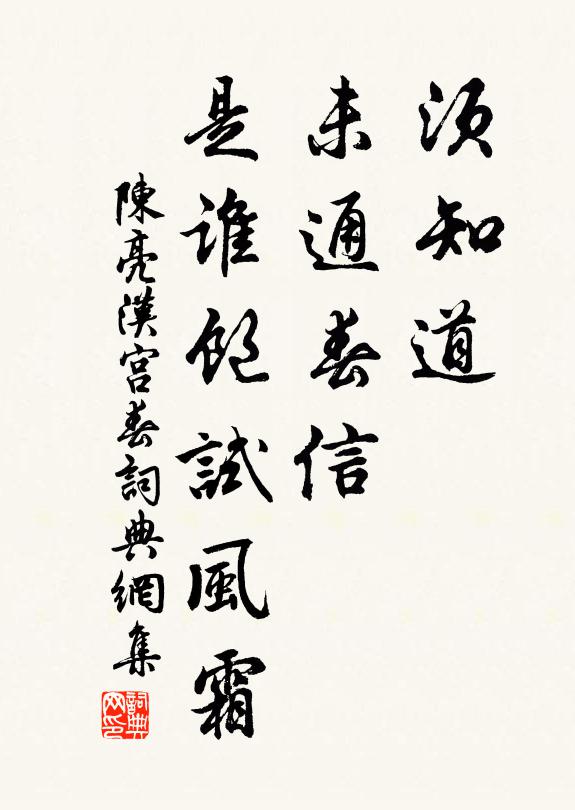 須知道
未通春信
是誰飽試風霜
陳亮漢宮春詞典網集
詞典網印